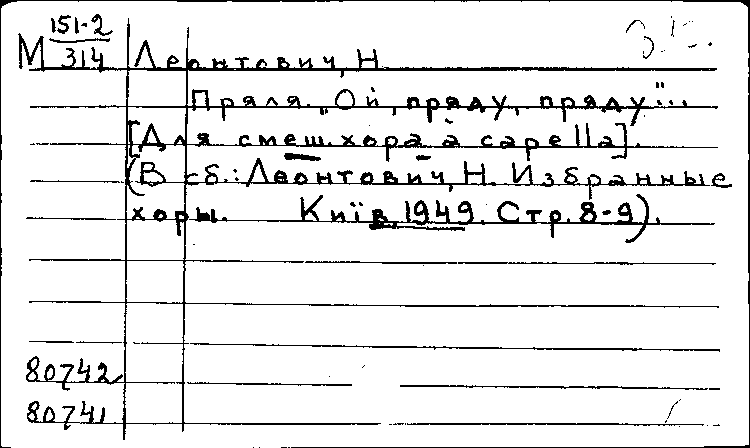 М 151-2
314
Леонтович, Н
Пряля. „Ой, пряду, пряду"...
[Для смеш. хора à capella].
(В сб.: Леонтович, Н. Избранные
хоры. Київ, 1949. Стр. 8-9).
80742
80741